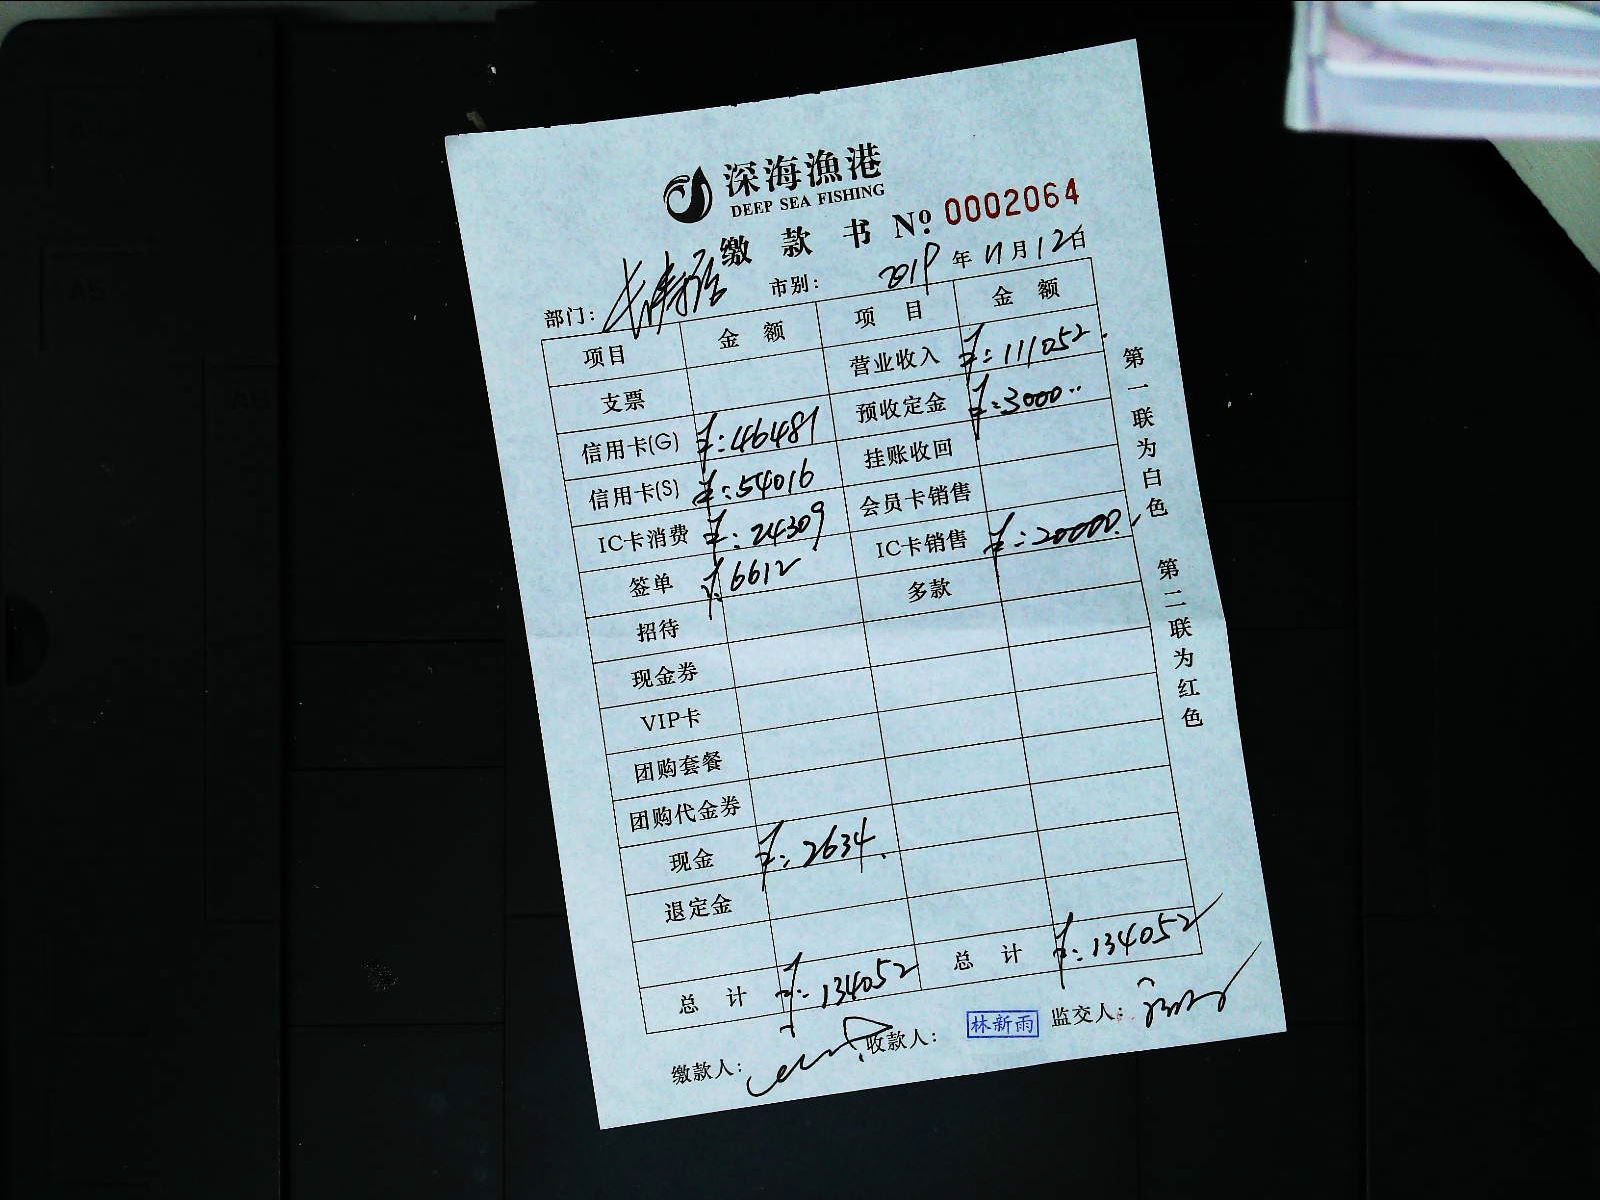 深海漁港
DEEP SEA FISHING
缴款书 Nº 0002064
部门： 市别： 2019年11月12日
项目 金额 项目 金额
支票 营业收入 ¥:111052.
信用卡(G) ¥:46481 预收定金 ¥:3000..
信用卡(S) ¥:54016 挂账收回
IC卡消费 ¥:24309 会员卡销售
签单 ¥:6612 IC卡销售 ¥:20000.
招待 多款
现金券
VIP卡
团购套餐
团购代金券
现金 ¥:2634.
退定金
总计 ¥:134052 总计 ¥:134052
缴款人： 收款人： 林新雨 监交人：
第一联为白色 第二联为红色